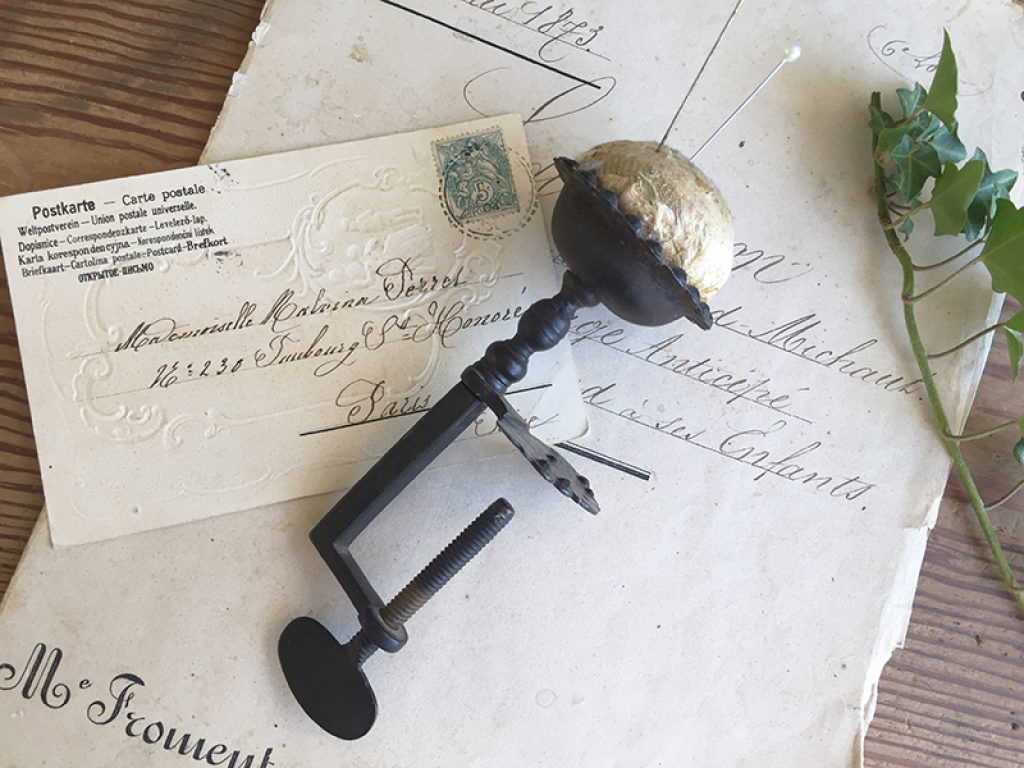 1873.
6e
Postkarte — Carte postale
Weltpostverein — Union postale universelle.
Dopisnice — Correspondenzkarte — Levelező-lap.
Karta korespondencyjna — Korespondenčni listek
Briefkaart — Cartolina postale — Postcard — Brefkort
ОТКРЫТОЕ-ПИСЬМО
5
Mademoiselle Malvina Perret
No: 230 Faubourg St. Honoré
Paris
d. Michaub.
Anticipé
d à ses Enfants
Me Froment